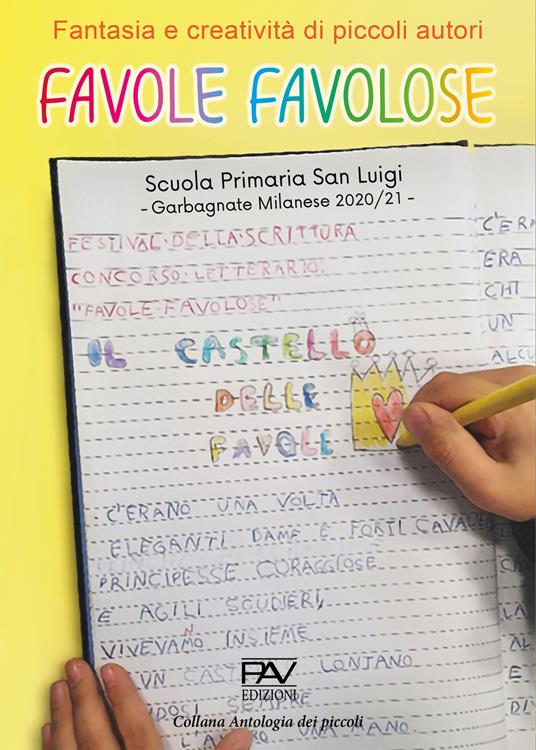 Fantasia e creatività di piccoli autori
FAVOLE FAVOLOSE
Scuola Primaria San Luigi
- Garbagnate Milanese 2020/21 -
FESTIVAL DELLA SCRITTURA
CONCORSO LETTERARIO:
"FAVOLE FAVOLOSE"
IL CASTELLO
DELLE
FAVOLE
C'ERANO UNA VOLTA
ELEGANTI DAME E FORTI CAVALIE
PRINCIPESSE CORAGGIOSE
E AGILI SCUDIERI,
VIVEVANO INSIEME
UN CAST LONTANO
DOSI SEMPRE
UNA MANO.
C'ERA
ERA
CHI
UN
ALCU
LA
AL
E
DI
PAV
EDIZIONI
Collana Antologia dei piccoli